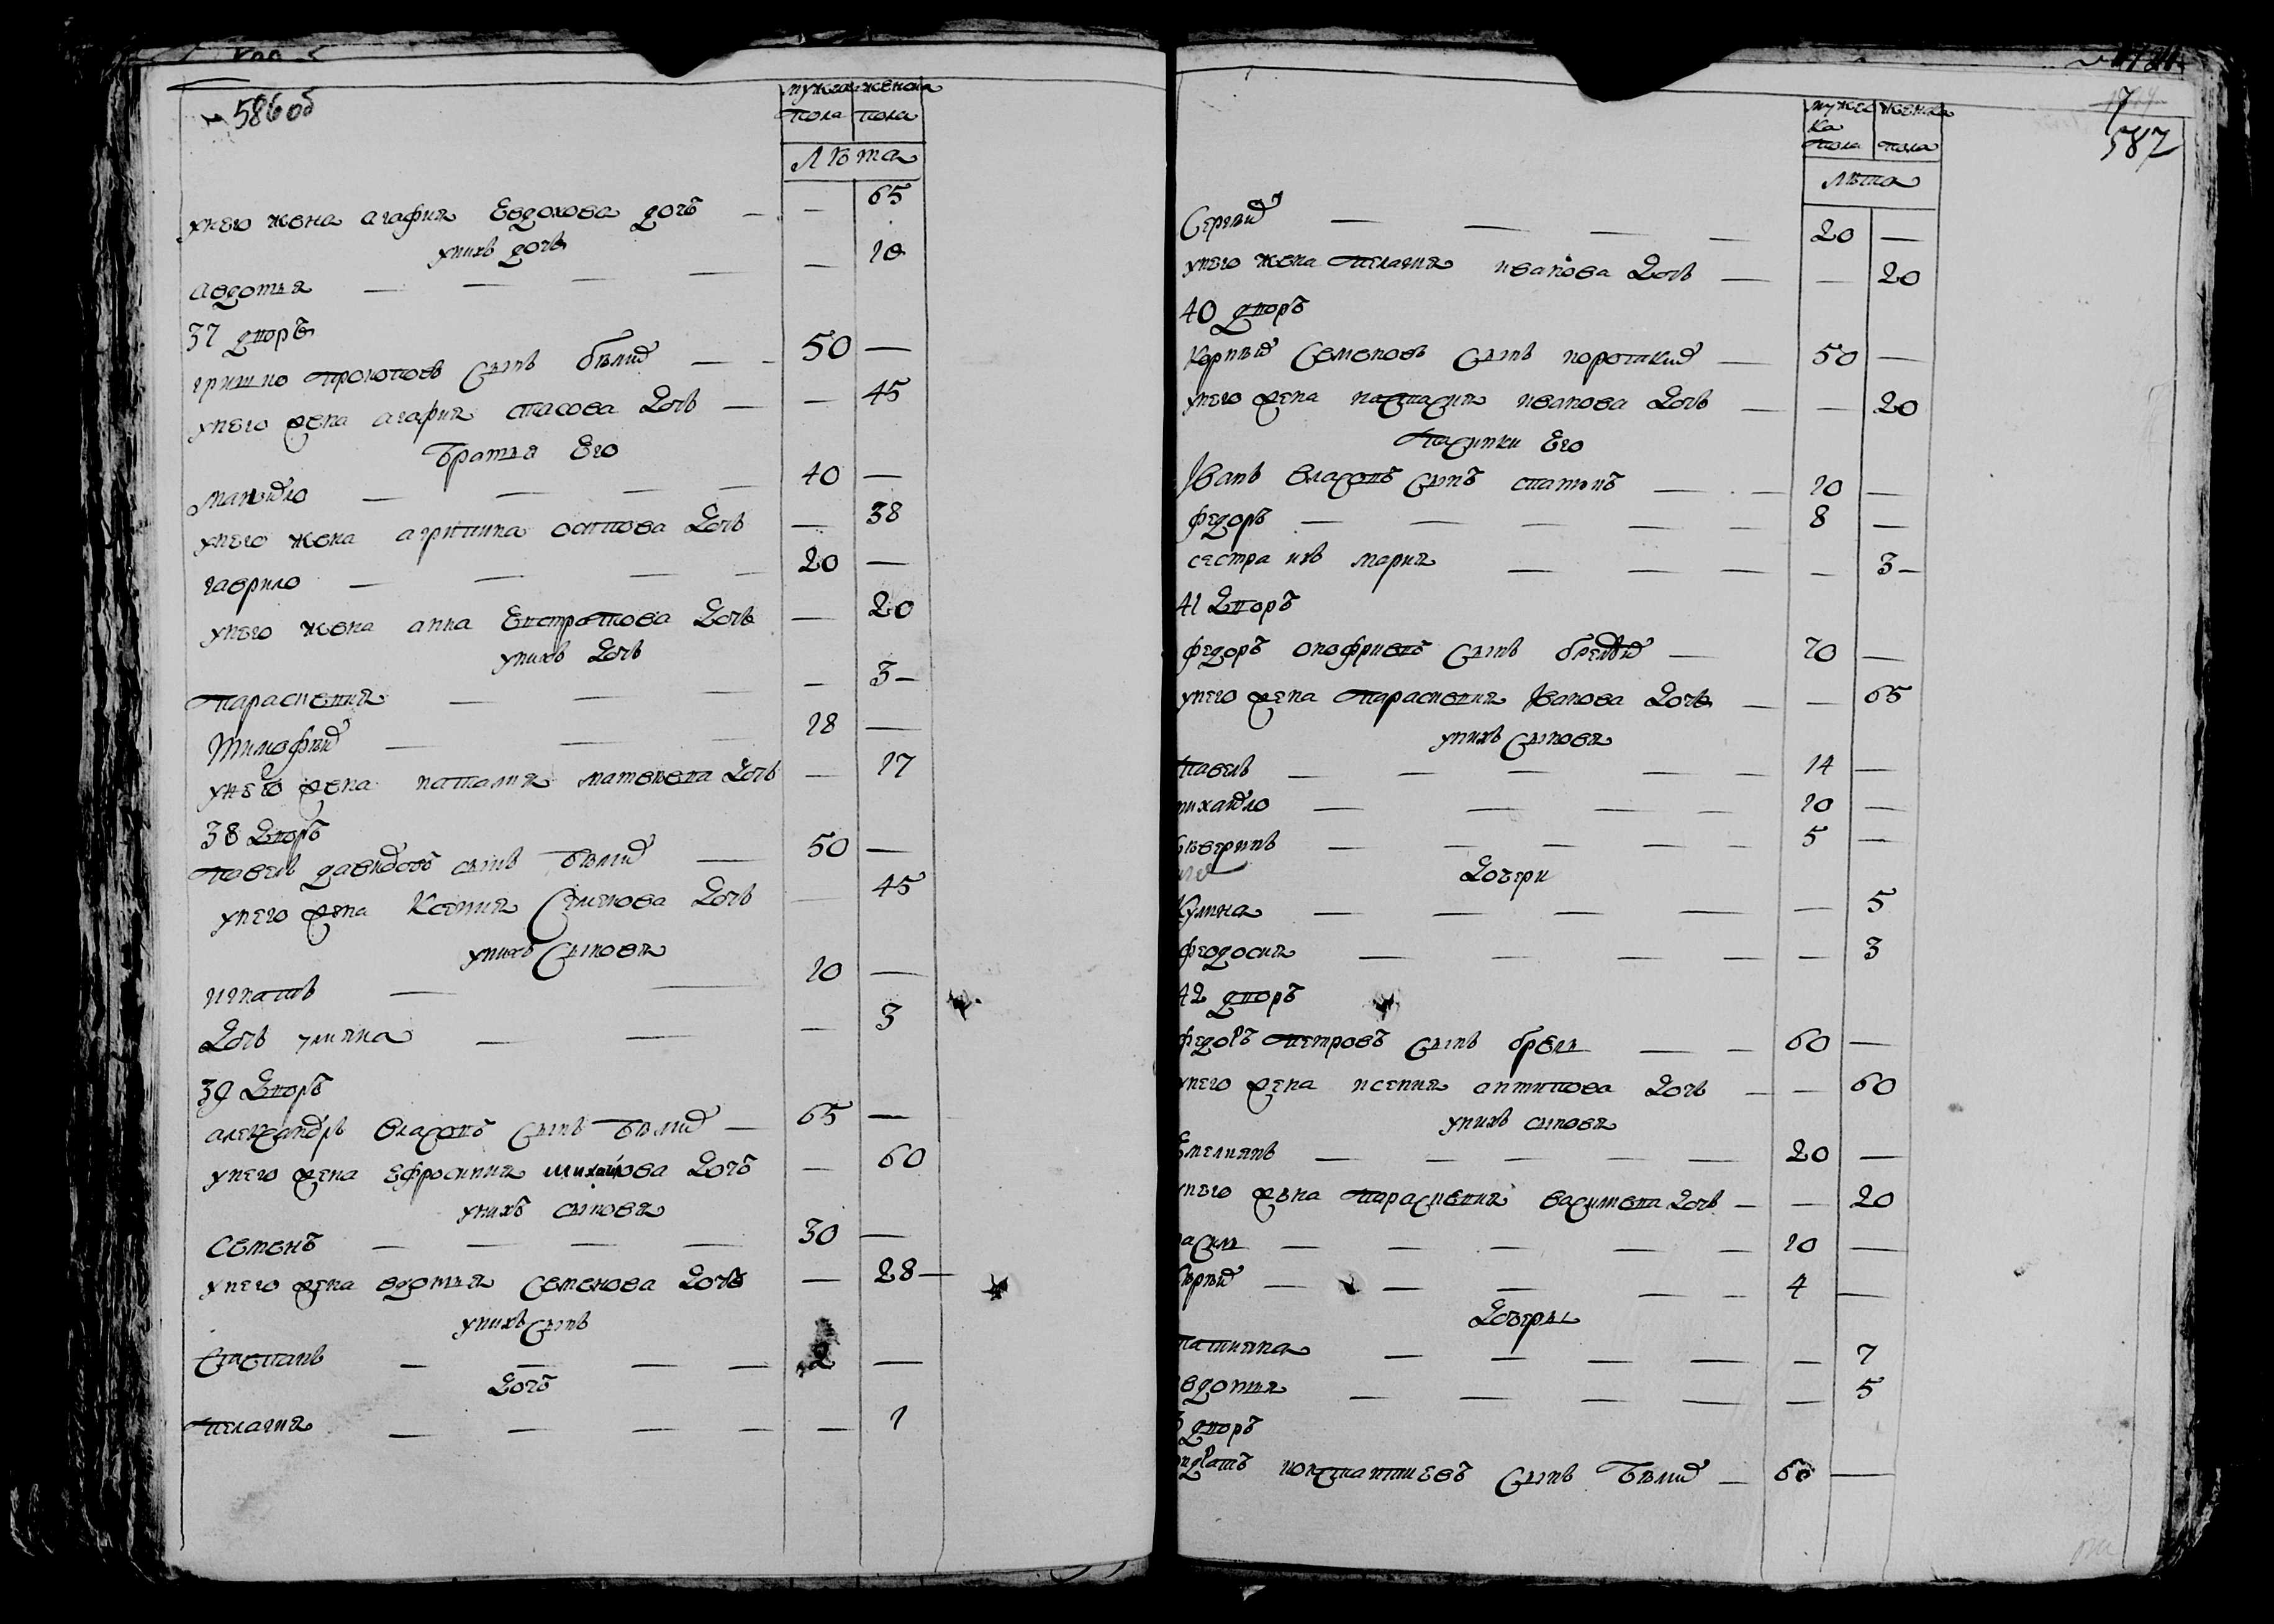 586 об
мужска женска
пола пола
Лѣта
унего жена агафия Евдохова дочъ — — 65
унихъ дочь
авдотья — — — — — 10
37 дворъ
гришко прокоповъ сынъ бѣлий — — 50 —
унего жена агафия стасова дочь — — 45
братья Его
манойло — — — — 40 —
унего жена агрипина осипова дочь — 38
гаврило — — — — 20 —
унего жена анна Евстратова дочь — 20
унихъ дочь
парасковия — — — — 3 —
Тимофѣй — — — 18 —
унего жена наталия матвѣева дочь — 17
38 дворъ
павелъ давидовъ сынъ бѣлий — 50 —
унего жена Ксения Семенова дочь — 45
унихъ Сыновя
игнатъ — — 10 —
дочь улияна — — — 3
39 дворъ
алеѯандръ власовъ сынъ бѣлий — 65 —
унего жена ефросиния михайлова дочъ — 60
унихъ сыновя
Семенъ — — — — 30 —
унего жена вдотья Семенова дочь — 28 —
унихъ Сынъ
Степанъ — — — — 2 —
дочъ
пелагия — — — — — 1
587
мужес женска
ка
пола пола
лѣта
Сергѣй — — — — 20 —
унего жена пелагия иванова дочь — — 20
40 дворъ
корнѣй Семеновъ сынъ короткий — 50 —
унего жена настасия иванова дочь — — 20
пасинки Его
Iванъ власовъ сынъ — — 10 —
федоръ — — — — — 8 —
сестра ихъ мария — — — — 3 —
41 дворъ
федоръ онофриевъ сынъ — 70 —
унего жена парасковия Iванова дочь — — 65
унихъ Сыновя
павелъ — — — — — 14 —
михайло — — — — 10 —
— — — — 5 —
дочери
Кулина — — — — — 5
феодосия — — — — — 3
42 дворъ
федоръ петровъ сынъ брель — — 60 —
унего жена ксения антипова дочь — — 60
унихъ сыновя
Емелиянъ — — — — — 20 —
унего жена парасковия василиева дочь — — 20
васили — — — — — 10 —
— — — — — 4 —
дочеры
татияна — — — — — 7
вдотия — — — — — 5
3 дворъ
кондратъ константиевъ сынъ бѣлий — 60 —